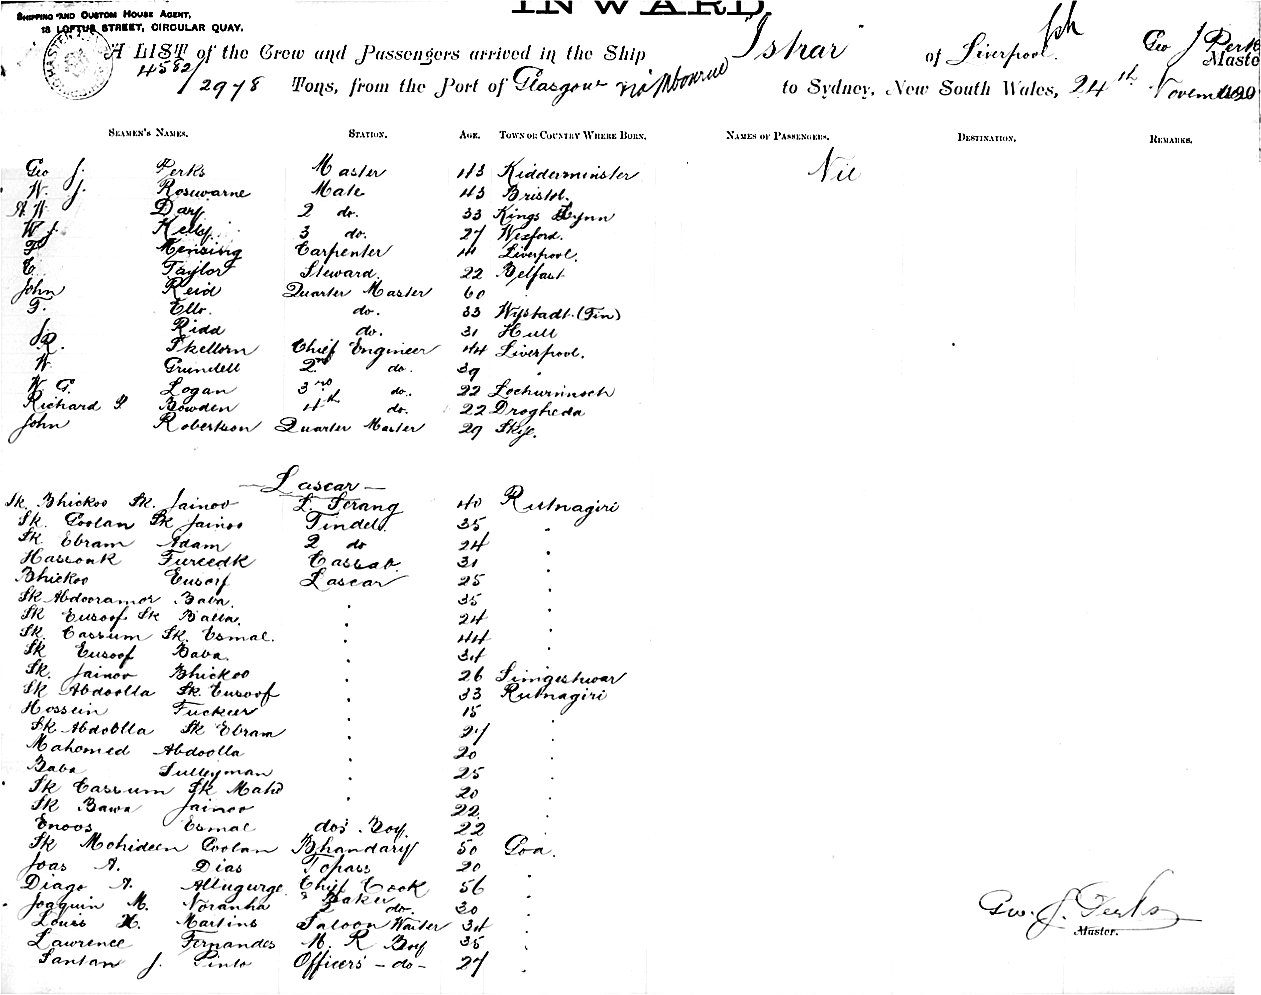 INWARD.
SHIPPING AND CUSTOM HOUSE AGENT,
18 LOFTUS STREET, CIRCULAR QUAY.
A LIST of the Crew and Passengers arrived in the Ship Iskar of Liverpool Geo J Perks Master
4582/2978 Tons, from the Port of Glasgow via Mbourne to Sydney, New South Wales, 24th November
SEAMEN'S NAMES. STATION. AGE. TOWN OR COUNTRY WHERE BORN. NAMES OF PASSENGERS. DESTINATION. REMARKS.
Geo J. Perks Master 43 Kidderminster Nil
W. J. Rosewarne Mate 43 Bristol.
A W Day 2 do. 33 Kings Lynn
W J. Kelly 3 do. 27 Wexford.
F Mensing Carpenter 44 Liverpool.
C Taylor Steward. 22 Belfast
John Reid Quarter Master 60
F. Ello. do. 33 Nystadt (Fin)
J. Ridd do. 31 Hull
R. Skellorn Chief Engineer 44 Liverpool.
W. Grundell 2nd do. 39 "
W. G. Logan 3rd do. 22 Lochwinnoch
Richard P Bowden 4th do. 22 Drogheda
John Robertson Quarter Master 29 Skye.
— Lascar —
Sk Bhickoo Sk. Jainoo L. Serang 40 Rutnagiri
Sk. Goolan Sk Jainoo Tindel. 35 "
Sk Ebram Adam 2 do 24 "
Hassonk Fureedk Cassab. 31 "
Bhickoo Eusoof Lascar 25 "
Sk Abdooramor Bawa. " 35 "
Sk Eusoof Sk Balla. " 24 "
Sk. Cassum Sk. Esmal. " 44 "
Sk Eusoof Baba. " 34 "
Sk. Jainoo Bhickoo " 26 Simgeshwar
Sk Abdoolla Sk. Eusoof " 33 Rutnagiri
Hossein Fuckeer " 15 "
Sk Abdoolla Sk Ebram " 27 "
Mahomed Abdoolla " 20 "
Baba Sulleyman " 25 "
Sk Cassum Sk Mahd " 20 "
Sk Bawa Jainoo " 22 "
Enoos Esmal dos Boy. 22 "
Sk Mohideen Goolan Bhandary 50 Goa.
Joas A. Dias Topass 20 "
Diago A. Albuqurge Chief Cook 56 "
Joaquin M. Noranha " Baker 2 do. 30 "
Louis X. Martins Saloon Waiter 34 "
Lawrence Fernandes M. R Boy 35 "
Santan J. Pinto Officers' - do - 27 "
Geo. J. Perks
Master.